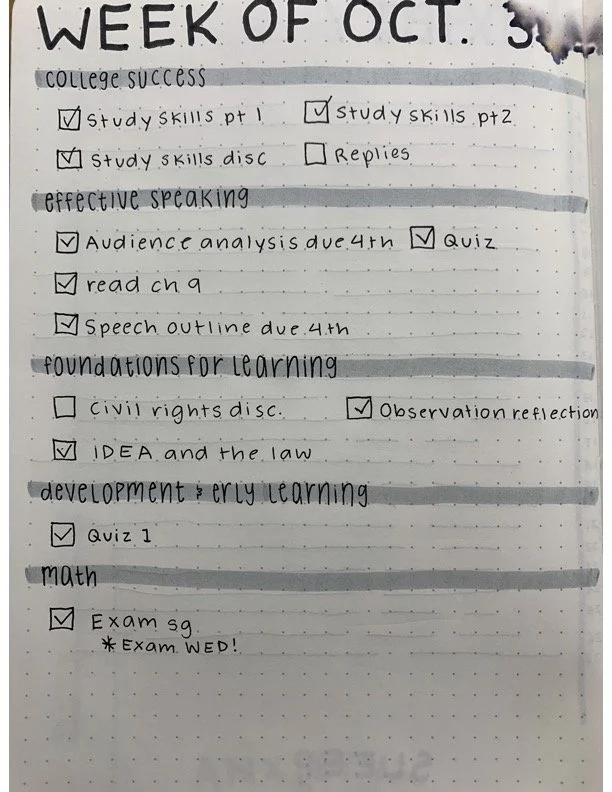 WEEK OF OCT. 3
college success
Study skills pt 1
Study skills pt2
Study skills disc
Replies
effective speaking
Audience analysis due 4th
Quiz
read ch 9
Speech outline due 4th
foundations for learning
Civil rights disc.
Observation reflection
IDEA and the law
development & erly learning
Quiz 1
math
Exam sg
* Exam WED!